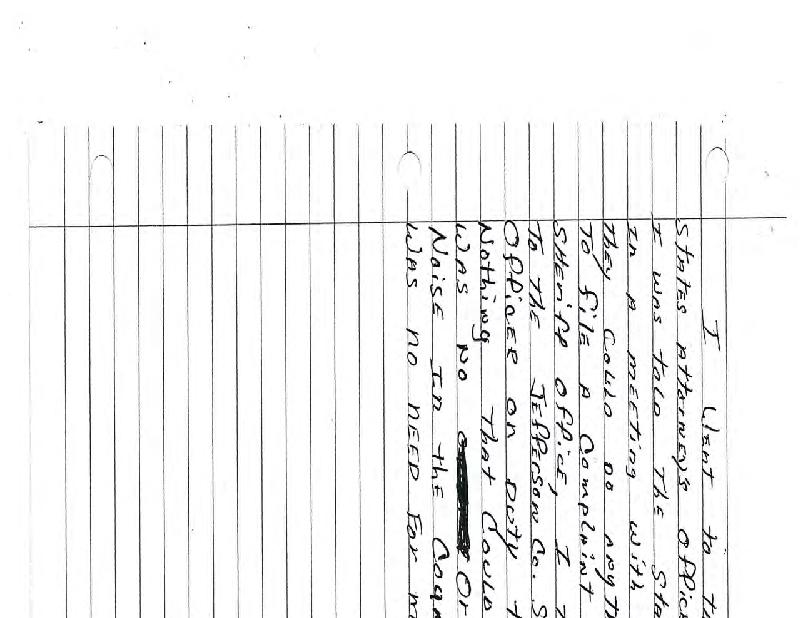 I Went to th
States Attorneys Offic
I was told The Sta
In A meeting with
They Could do anyth
To file A Complaint
SHeriff Office, I T
To the Jefferson Co. S
OfficeR on Duty t
Nothing That Could
WAS NO Or
Noise In the Coun
WAS no NEED For m